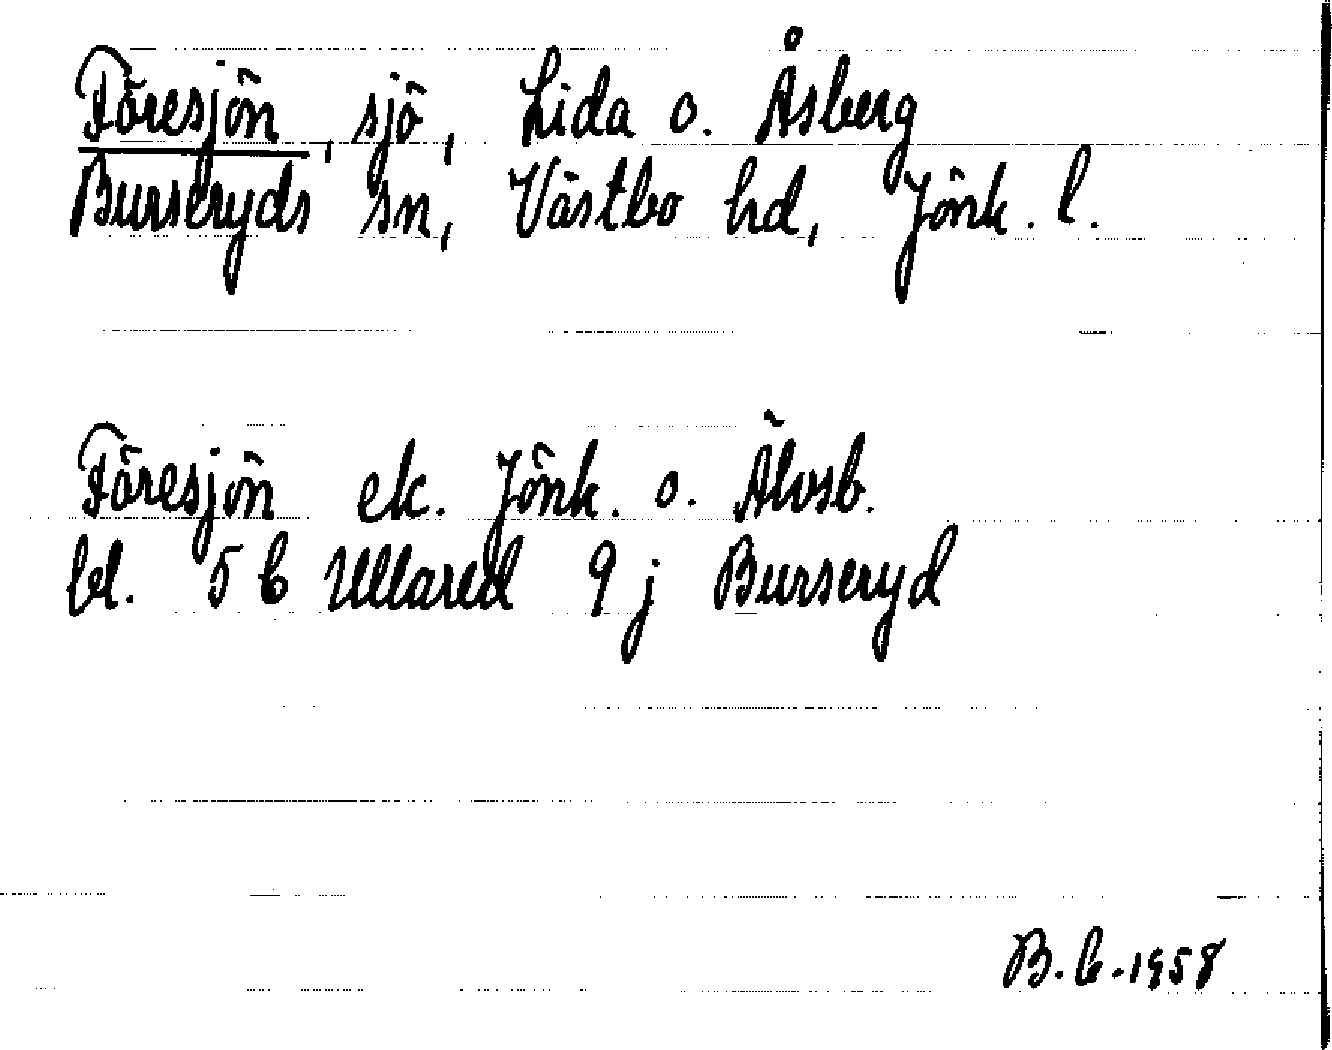 Föresjön, sjö, Lida o. Åsberg
Burseryds sn, Västbo hd, Jönk. l.
Föresjön ek. Jönk. o. Älvsb.
bl. 5 C Ullared 9 j Burseryd
B. E. 1958